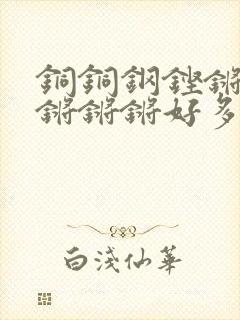 銅銅鋼鏗鏘
鏘鏘鏘好多
白淺仙華